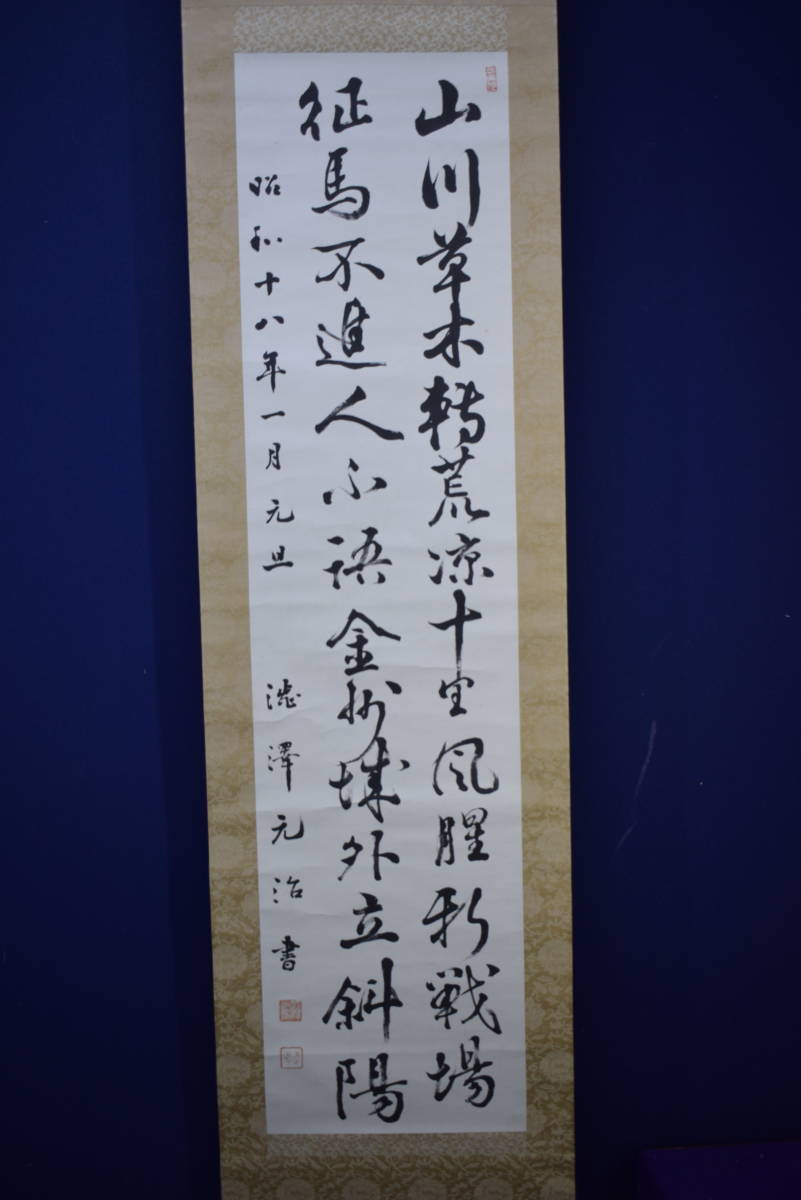 山川草木轉荒凉十里風腥新戰場
征馬不進人不語金州城外立斜陽
昭和十八年一月元旦　澁澤元治書